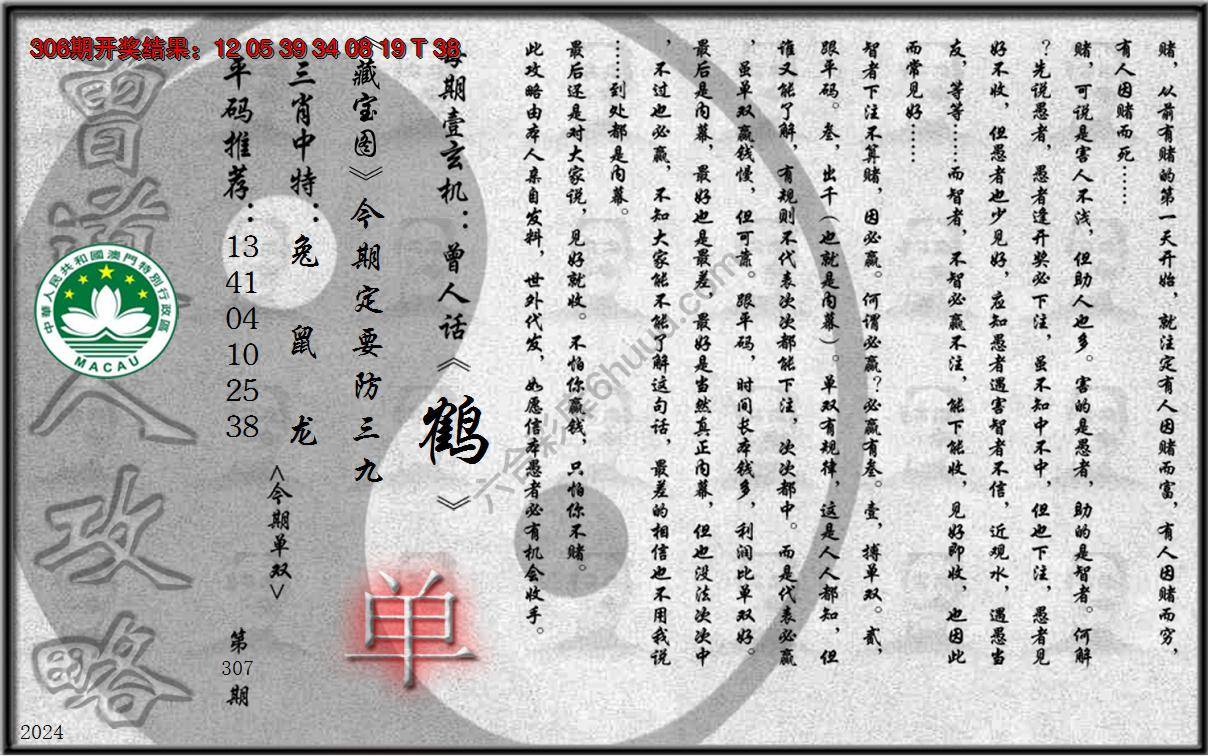 306期开奖结果：12 05 39 34 08 19 T 38
赌，从前有赌的第一天开始，就注定有人因赌而富，有人因赌而穷，
有人因赌而死……
赌，可说是害人不浅，但助人也多。害的是愚者，助的是智者。何解
？先说愚者，愚者逢开奖必下注，虽不知中不中，但也下注，愚者见
好不收，但愚者也少见好，应知愚者遇害智者不信，近观水，遇愚当
友，等等……而智者，不智必赢不注，能下能收，见好即收，也因此
而常见好……
智者下注不算赌，因必赢。何谓必赢？必赢有叁。壹，搏单双。贰，
跟平码。叁，出千（也就是内幕）。单双有规律，这是人人都知，但
谁又能了解，有规则不代表次次都能下注，次次都中。而是代表必赢
，虽单双赢钱慢，但可靠。跟平码，时间长本钱多，利润比单双好。
最后是内幕，最好也是最差，最好是当然真正内幕，但也没法次次中
，不过也必赢，不知大家能不能了解这句话，最差的相信也不用我说
……到处都是内幕。
最后还是对大家说，见好就收。不怕你赢钱，只怕你不赌。
此攻略由本人亲自发料，世外代发，如愿信本愚者必有机会收手。
每期壹玄机：曾人话《鹤》
《藏宝图》今期定要防三九
三肖中特：兔 鼠 龙
平码推荐：
13
41
04
10
25
38
<今期单双>
单
第
307
期
曾道人攻略
中華人民共和國澳門特別行政區
MACAU
六合彩库6huuu.com
2024